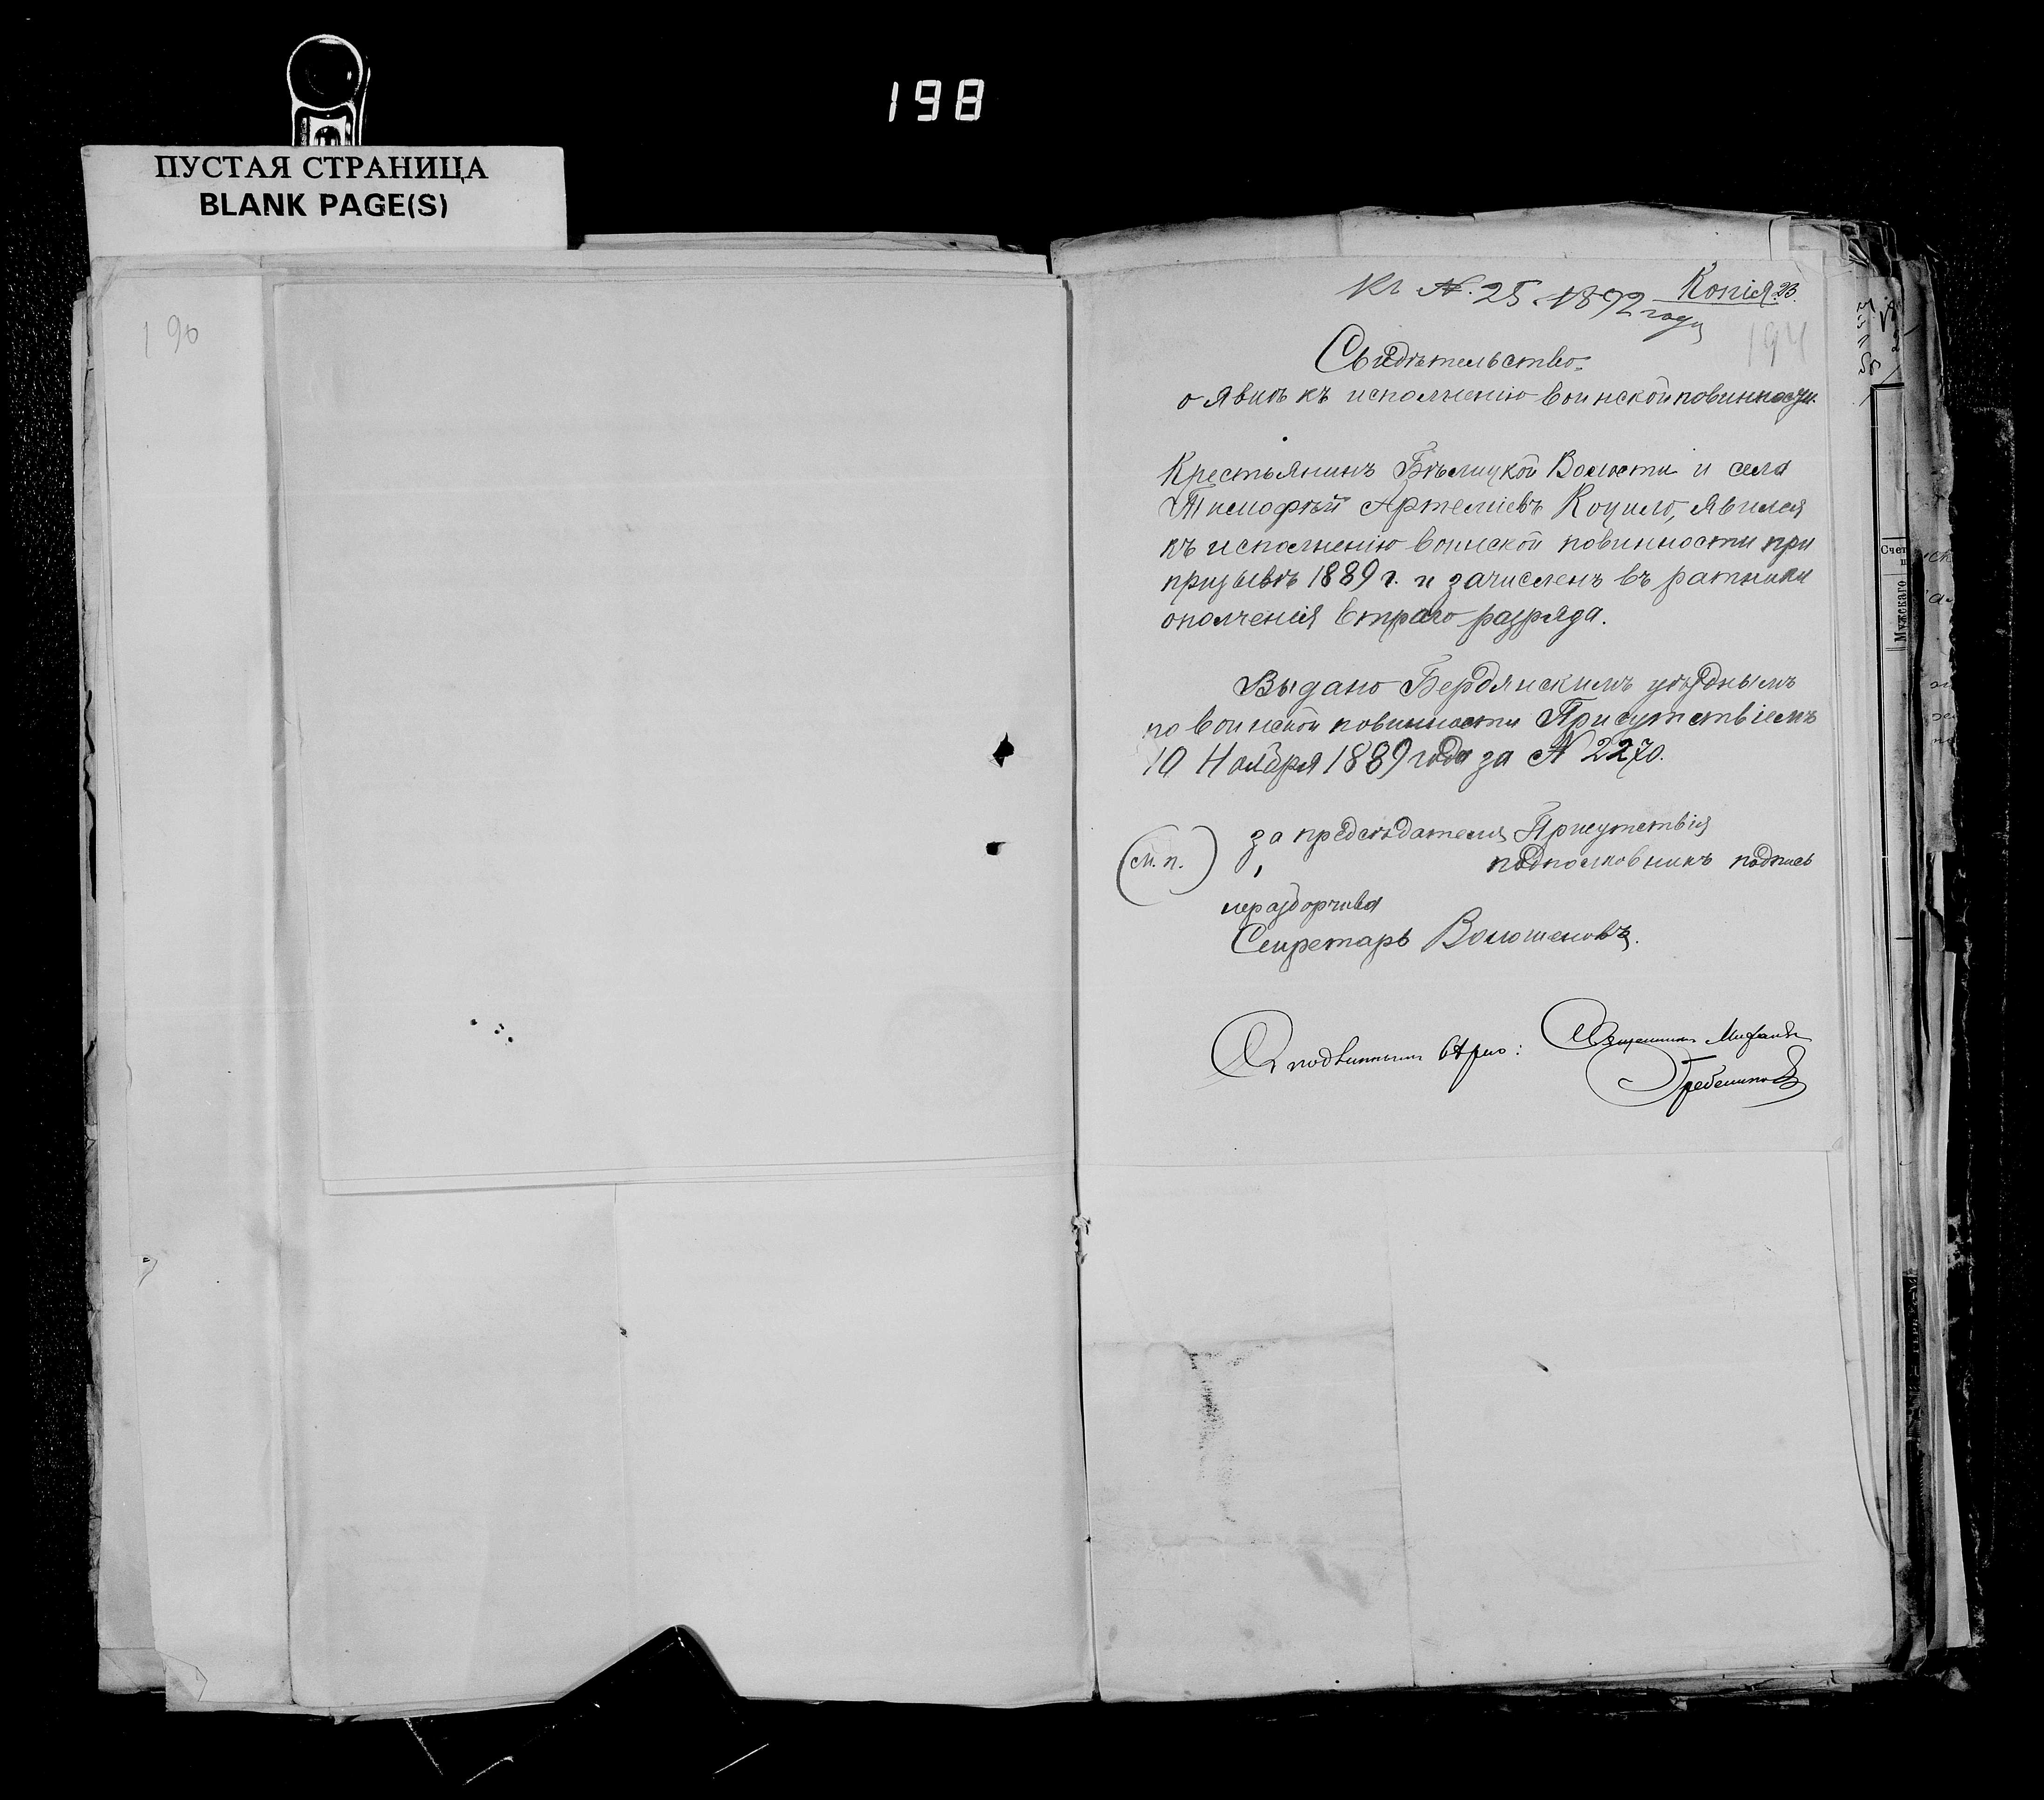 198
ПУСТАЯ СТРАНИЦА
BLANK PAGE(S)
190
Къ №. 25. 1892 года
Копія 23.
194
Свидѣтельство
о явкѣ къ исполненію воинской повинности.
Крестьянинъ Бѣлицкой Волости и села
Тимофѣй Артеміевъ Коцило, явился
къ исполненію воинской повинности при
призывѣ 1889 г. и зачисленъ въ ратники
ополченія втраго разряда.
Выдано Бердянскимъ уѣзднымъ
по воинской повинности Присутствіемъ
10 Ноября 1889 года за № 2270.
за предсѣдателя Присутствія
(М. п.) подполковникъ подпись
неразборчива
Секретарь Волошеновъ.
Съ подлиннымъ вѣрно: Священникъ Михаилъ
Гребенниковъ
Счет
Мужескаго